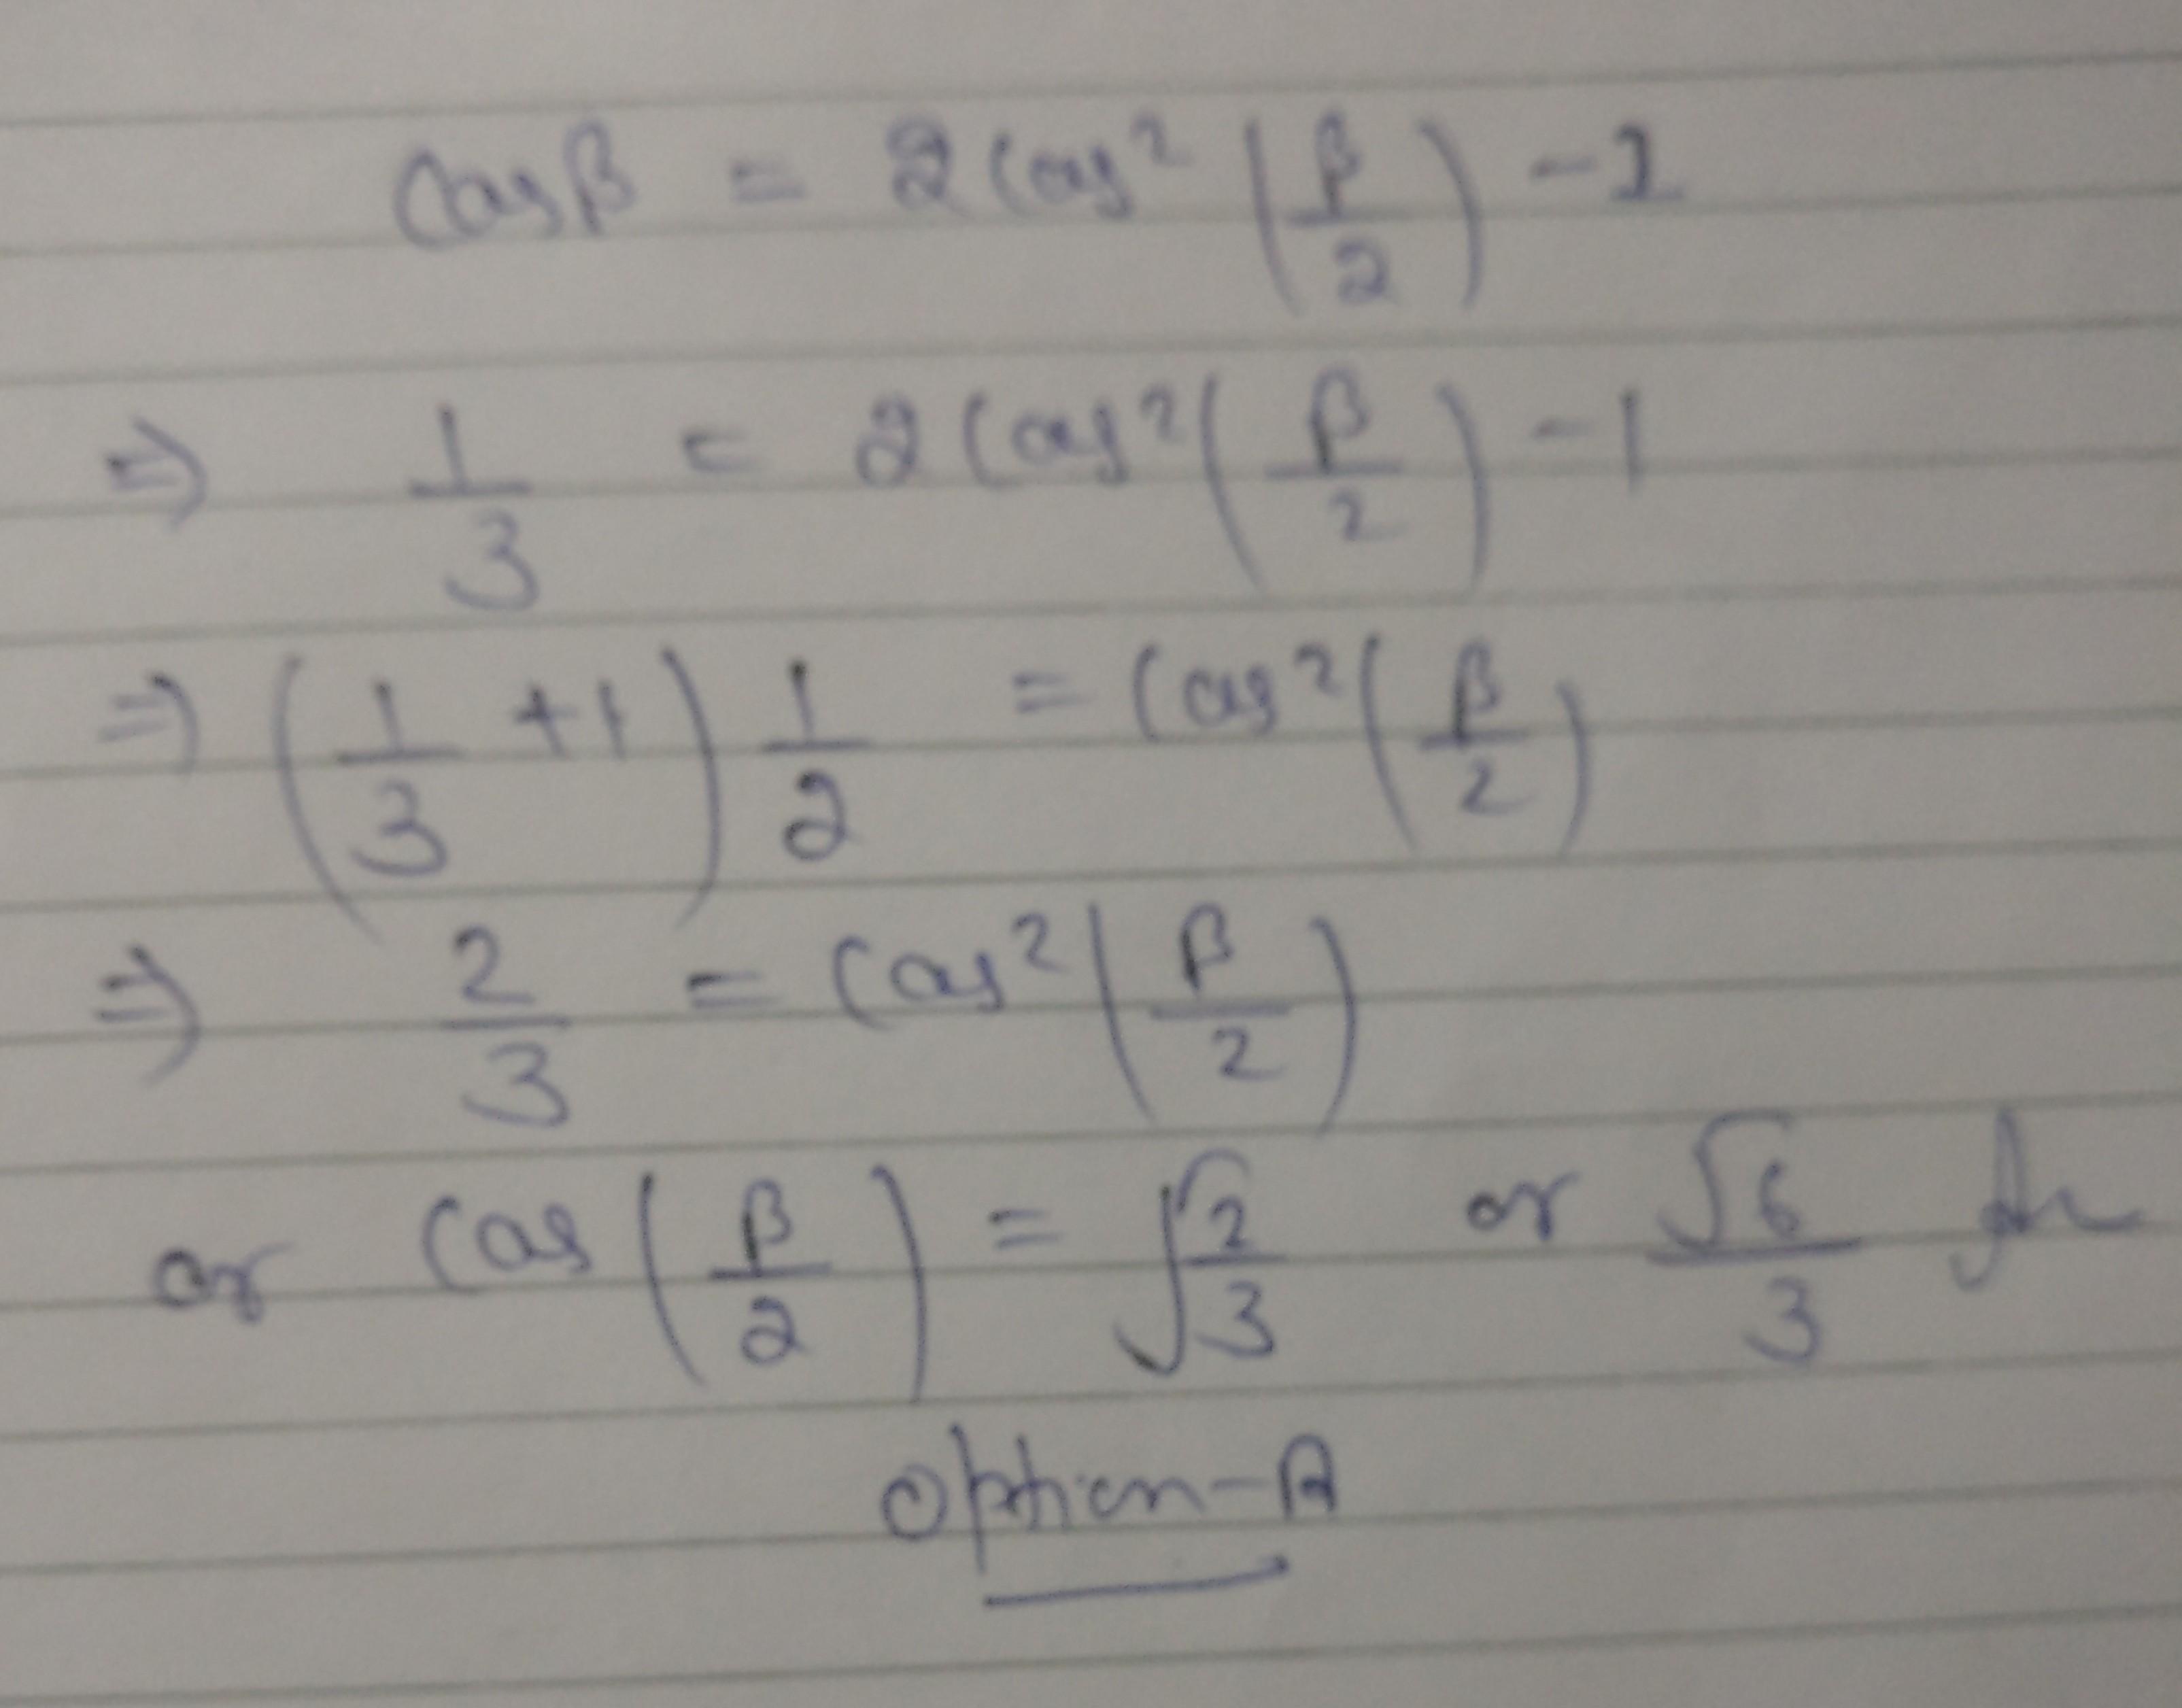 Cosβ = 2Cos²(β/2) - 1
⇒ 1/3 = 2Cos²(β/2) - 1
⇒ (1/3 + 1) 1/2 = Cos²(β/2)
⇒ 2/3 = Cos²(β/2)
or Cos(β/2) = √(2/3) or √6/3
Option-A